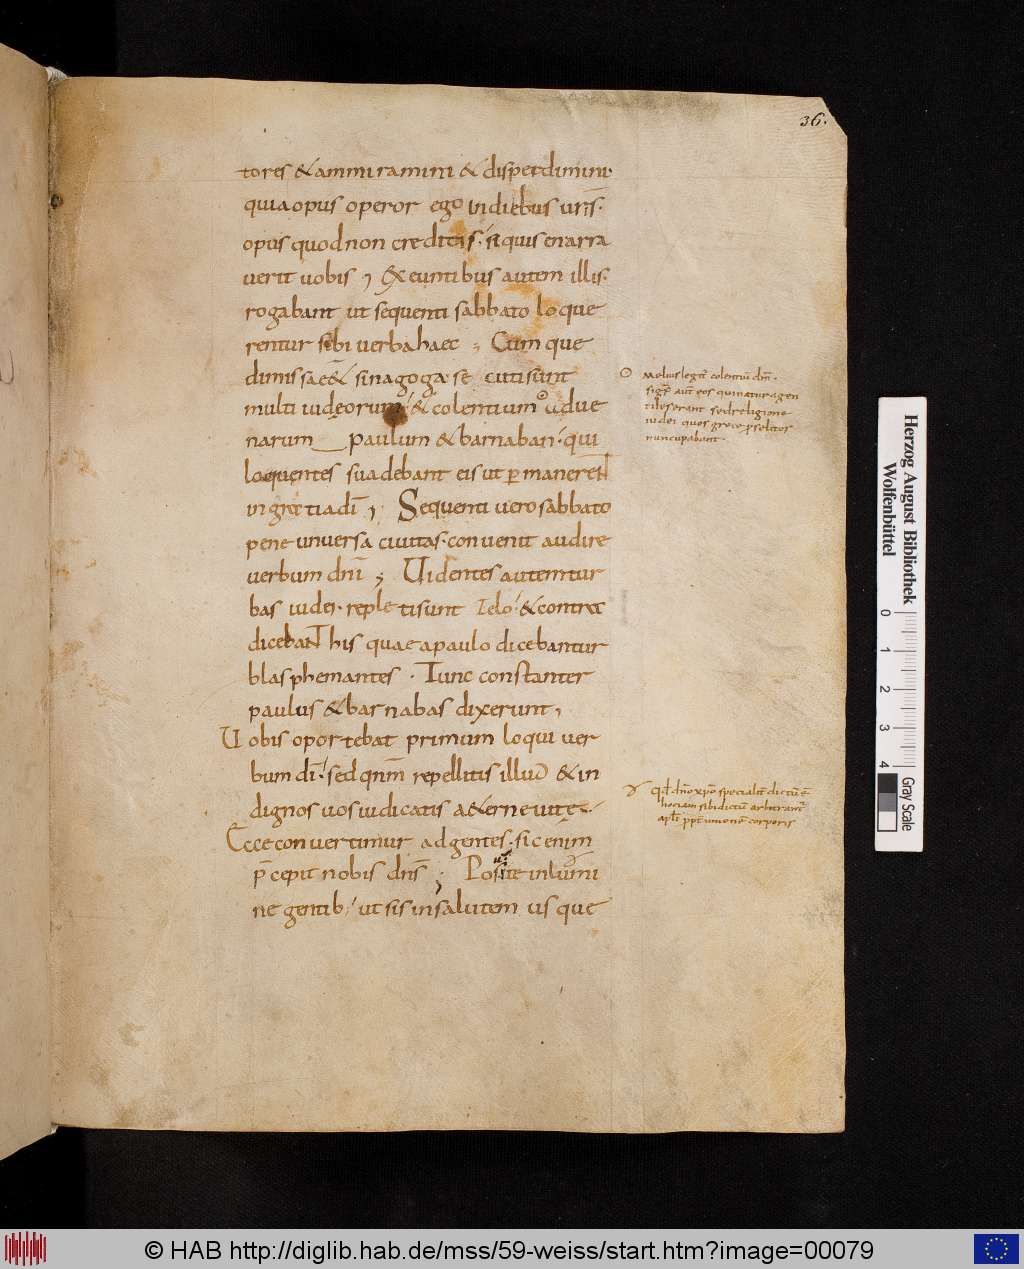 36.
tores & ammiramini & disperdimini
quia opus operor ego in diebus uris.
opus quod non creditis. si quis enarra
uerit uobis ; Exeuntibus autem illis.
rogabant ut sequenti sabbato loque
rentur sibi uerba haec ; Cum que
dimissa e& sinagoga secuti sunt
multi iudeorum & colentium adue
narum paulum & barnaban. qui
loquentes suadebant eis ut p maneren&
in gratia di ; Sequenti uero sabbato
pene uniuersa ciuitas. conuenit audire
uerbum dni ; Uidentes autem tur
bas iudei. repleti sunt zelo. & contra
diceban& his quae a paulo dicebantur
blasphemantes. Tunc constanter
paulus & barnabas dixerunt,
Uobis oportebat primum loqui uer
bum di. sed qnm repellitis illud & in
dignos uos iudicatis a&erne uite.
Ecce conuertimur ad gentes. sic enim
p cepit nobis dns ; Posui te in lumi
ne gentib. ut sis in salutem us que
Melius legit colentiu dm.
sign aut eos qui natura gen
tiles erant sed religione
iudei quos greci proselitos
nuncupabant.
qd dno xpo specialit dictu e
hoc iam sibi dictu arbitrant
apli ppt unione corporis
Herzog August Bibliothek
Wolfenbüttel
0 1 2 3 4
Gray Scale
© HAB http://diglib.hab.de/mss/59-weiss/start.htm?image=00079